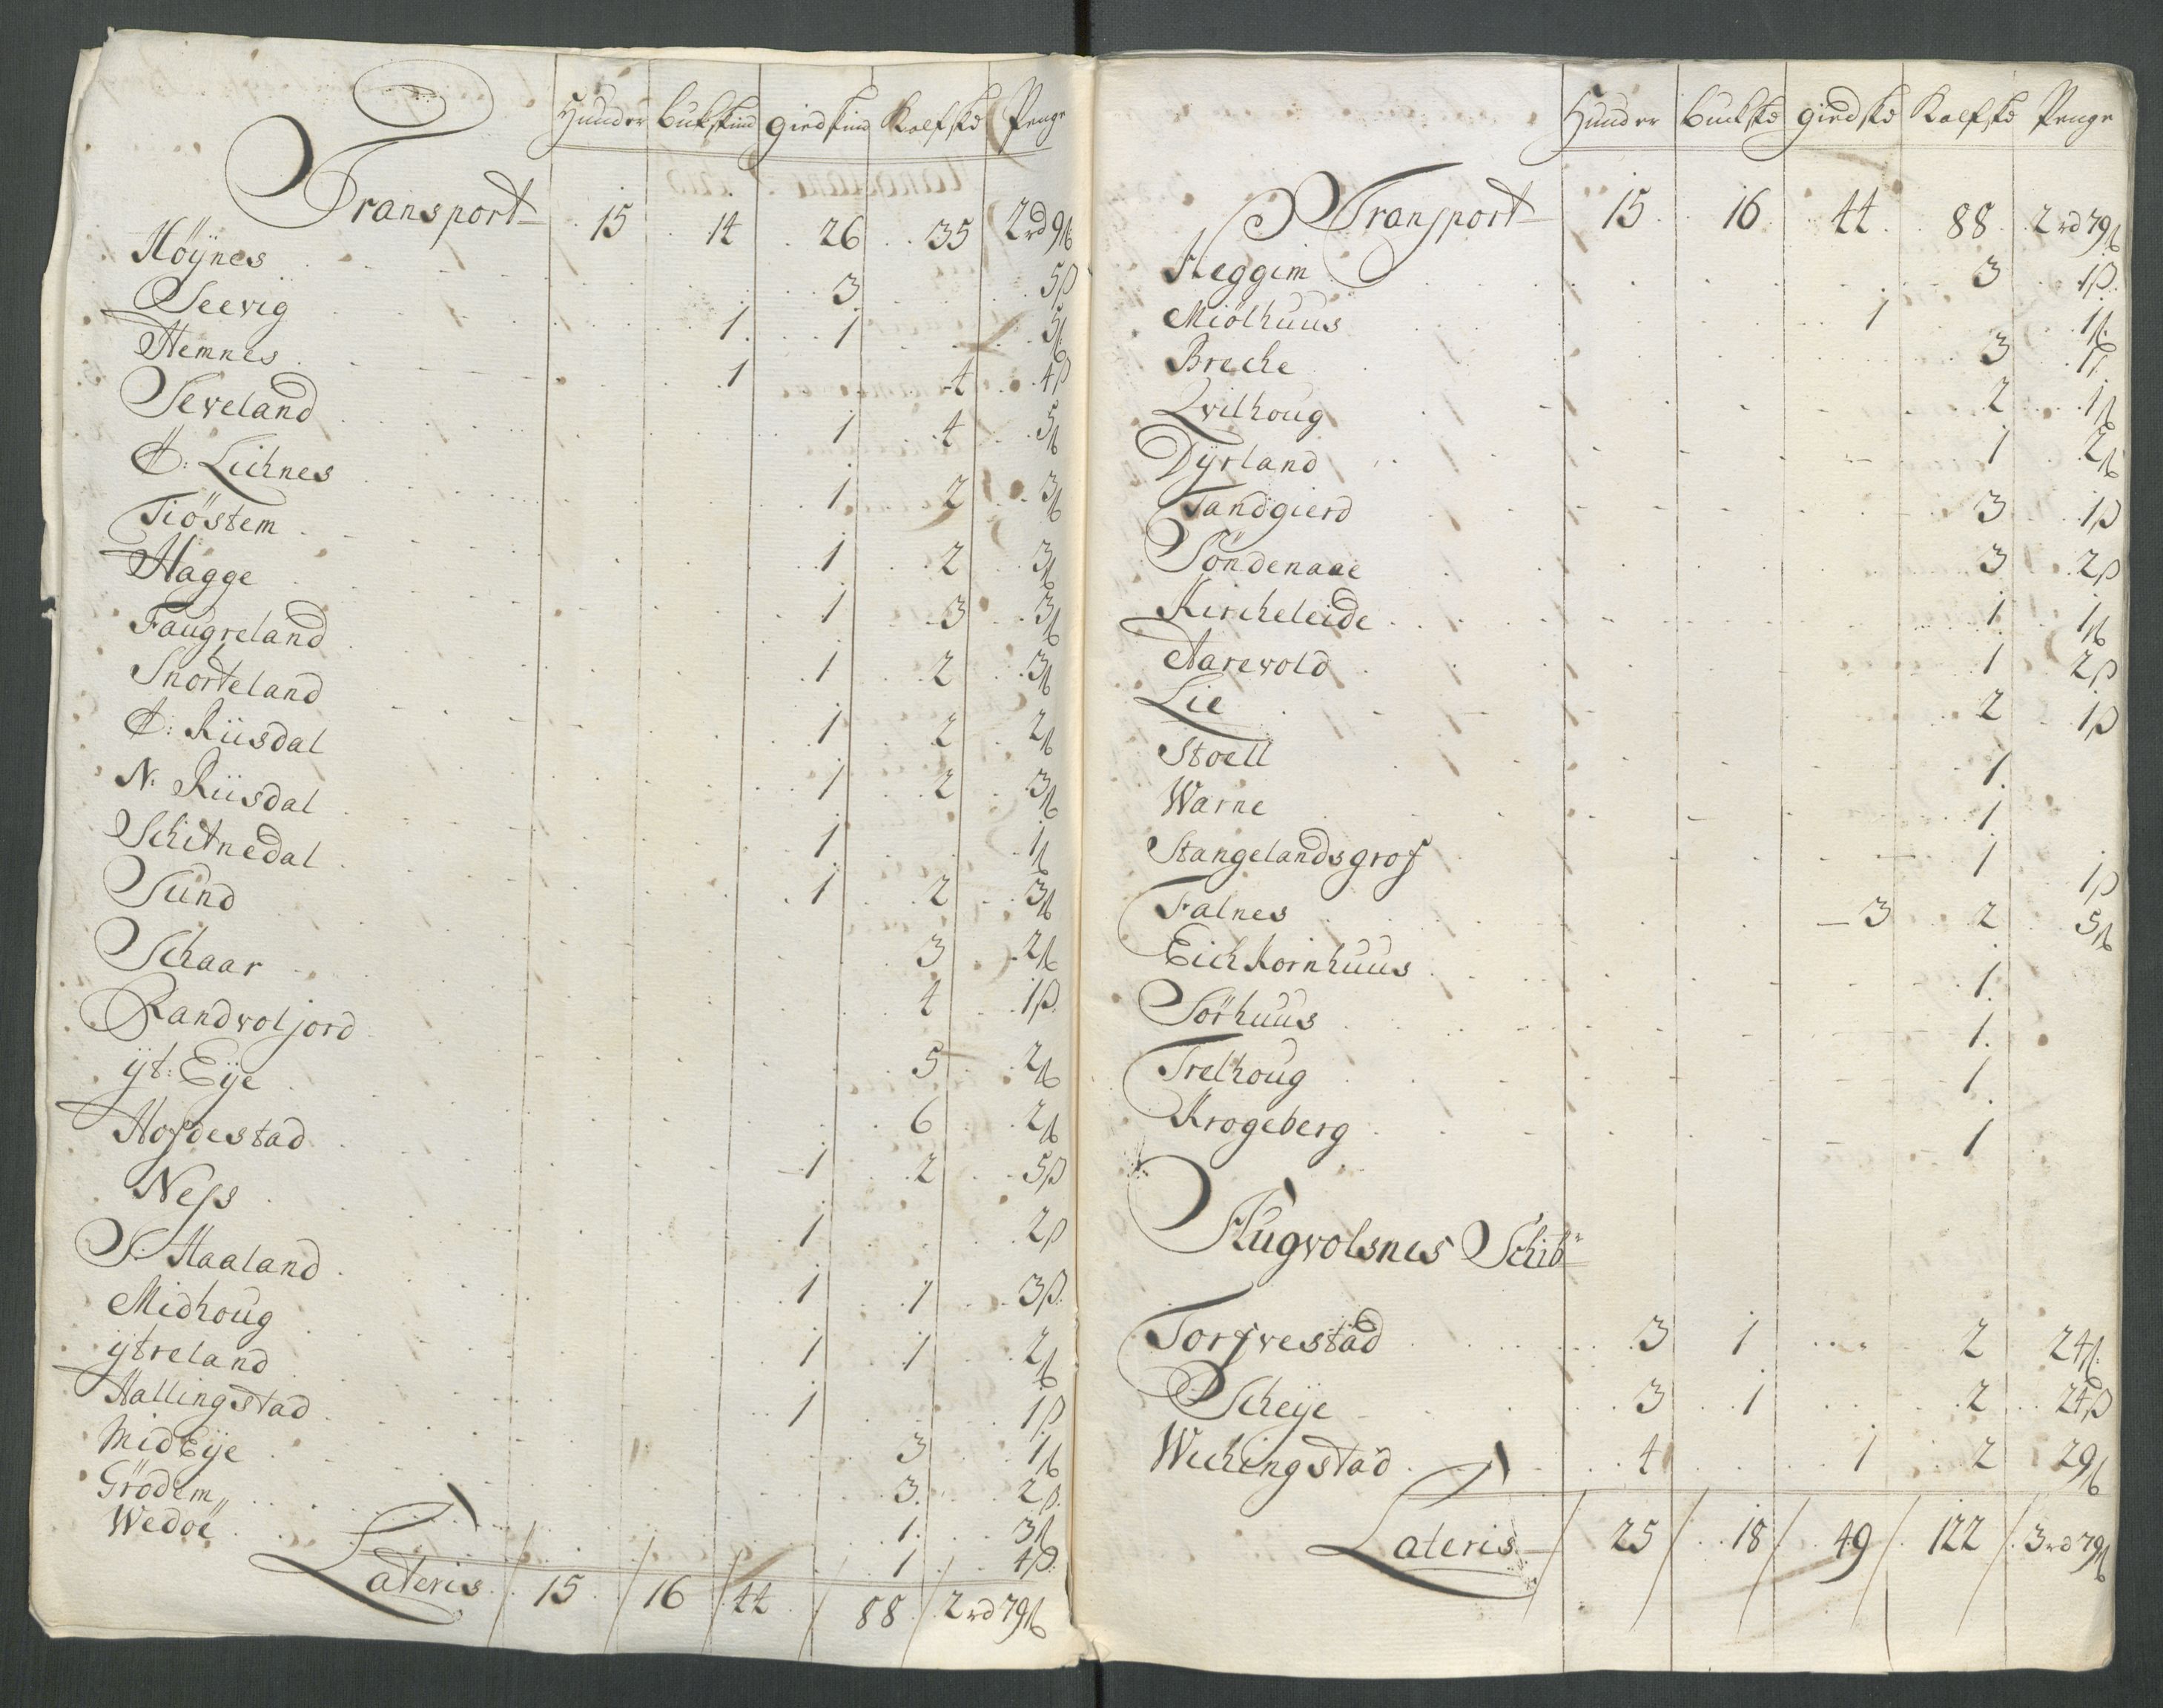 Hunder Bukskind giedskind Kalfskd Penge
Transport 15 14 26 35 2rd 9ß
Höÿnes 3 5ß
Seevig 1 1 5ß
Hemnes 1 4 4ß
Seveland 1 4 5ß
A: Lichnes 1 2 3ß
Tiöstem 1 2 3ß
Hagge 1 3 3ß
Faugreland 1 2 3ß
Snorteland 1 2 2ß
A: Riisdal 1 2 3ß
N: Riisdal 1 1ß
Schitnedal 1 2 3ß
Sund 3 2ß
Schaar 4 1ß
Randvoljord 5 2ß
ÿt: Eÿe 6 2ß
Hofdestad 1 2 5ß
Ness 1 2ß
S. Haaland 1 1 3ß
Midhoug 1 1 2ß
ÿtreland 1 1ß
Hallingstad 3 1ß
Mid Eÿe 3 2ß
Grödem 1 3ß
Wedöe 1 4ß
Lateris 15 16 44 88 2rd 79ß
Hunder Buckskd giedskd Kalfskd Penge
Transport 15 16 44 88 2rd 79ß
Heggem 3 1ß
Miölhuus 1 1ß
Breche 3 1ß
Qvilhoug 2 1ß
Dÿrland 1 2ß
Tandgierd 3 1ß
Söndenaae 3 2ß
Kircheleide 1 1ß
Aarevold 1 2ß
Lie 2 1ß
Stoell 1
Warne 1
Stangelandsgrof 1 1ß
Falnes 3 2 5ß
Eichkornhuus 1
Sörhuus 1
Trelhoug 1
Krogeberg 1
Augvolsnes Schibr
Torfvestad 3 1 2 24ß
Scheije 3 1 2 24ß
Wichingstad 4 1 2 29ß
Lateris 25 18 49 122 3rd 79ß